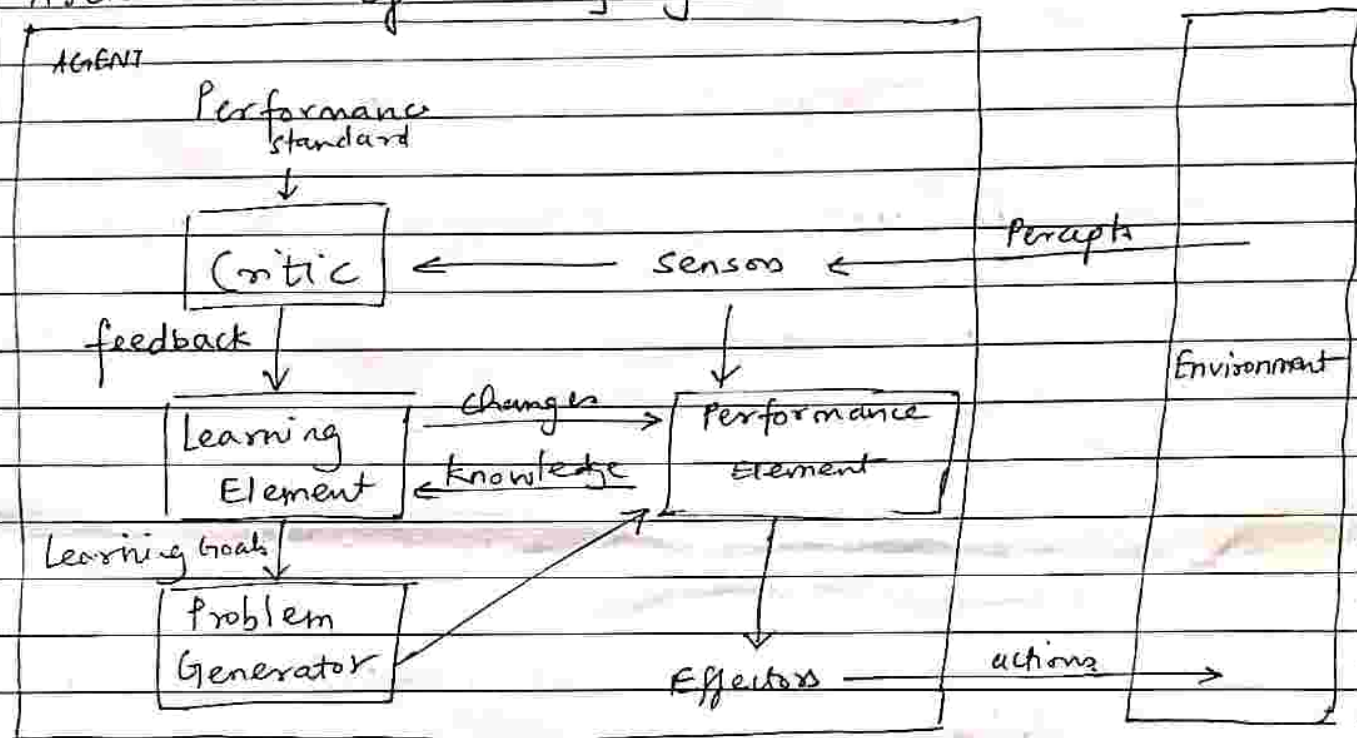 AGENT
Performanc
standard
Critic
Sensors
Percepts
feedback
Environment
Learning
Element
changes
Knowledge
Performance
Element
Learning Goals
Problem
Generator
Effectors
actions